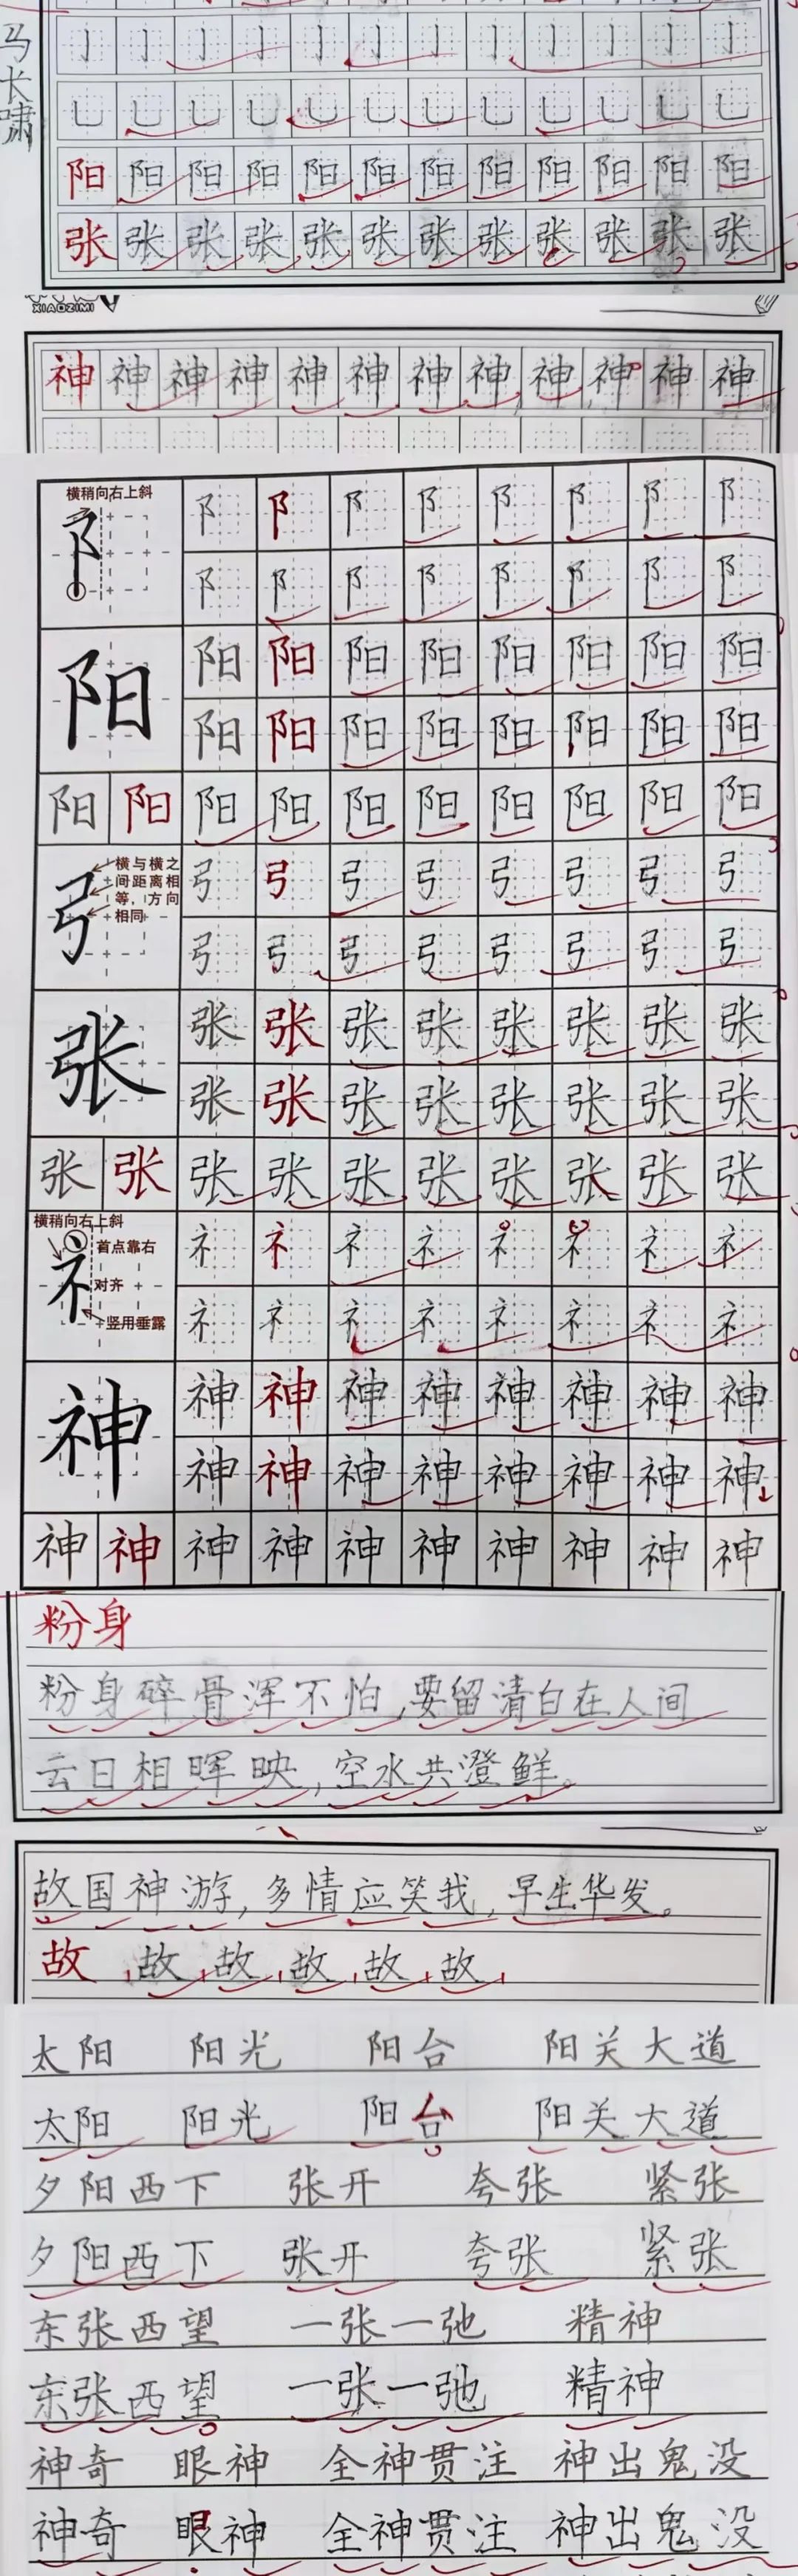 马长啸
亅 亅 亅 亅 亅 亅 亅 亅 亅 亅 亅 亅
乚 乚 乚 乚 乚 乚 乚 乚 乚 乚 乚 乚
阳 阳 阳 阳 阳 阳 阳 阳 阳 阳 阳 阳
张 张 张 张 张 张 张 张 张 张 张 张
XIAOZIMI
神 神 神 神 神 神 神 神 神 神 神 神
横稍向右上斜
阝 阝 阝 阝 阝 阝 阝 阝 阝
阝 阝 阝 阝 阝 阝 阝 阝
阳 阳 阳 阳 阳 阳 阳 阳 阳
阳 阳 阳 阳 阳 阳 阳 阳
阳 阳 阳 阳 阳 阳 阳 阳 阳 阳
横与横之
间距离相
等，方向
相同
弓 弓 弓 弓 弓 弓 弓 弓 弓
弓 弓 弓 弓 弓 弓 弓 弓
张 张 张 张 张 张 张 张 张
张 张 张 张 张 张 张 张
张 张 张 张 张 张 张 张 张 张
横稍向右上斜
首点靠右
对齐
竖用垂露
礻 礻 礻 礻 礻 礻 礻 礻 礻
礻 礻 礻 礻 礻 礻 礻 礻
神 神 神 神 神 神 神 神 神
神 神 神 神 神 神 神 神
神 神 神 神 神 神 神 神 神 神
粉身
粉身碎骨浑不怕,要留清白在人间
云日相晖映,空水共澄鲜。
故国神游,多情应笑我,早生华发。
故 故 故 故 故 故
太阳 阳光 阳台 阳关大道
太阳 阳光 阳台 阳关大道
夕阳西下 张开 夸张 紧张
夕阳西下 张开 夸张 紧张
东张西望 一张一弛 精神
东张西望 一张一弛 精神
神奇 眼神 全神贯注 神出鬼没
神奇 眼神 全神贯注 神出鬼没